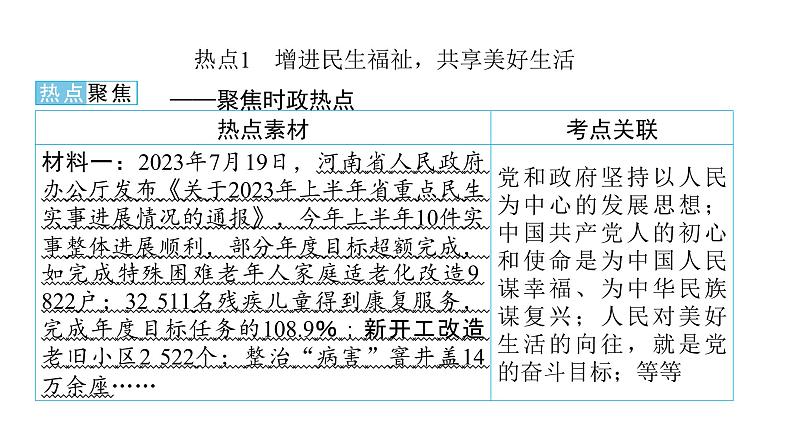 热点1　增进民生福祉，共享美好生活
热点聚焦　——聚焦时政热点
热点素材
材料一：2023年7月19日，河南省人民政府
办公厅发布《关于2023年上半年省重点民生
实事进展情况的通报》，今年上半年10件实
事整体进展顺利，部分年度目标超额完成，
如完成特殊困难老年人家庭适老化改造9
822户；32 511名残疾儿童得到康复服务，
完成年度目标任务的108.9%；新开工改造
老旧小区2 522个；整治“病害”窨井盖14
万余座……
考点关联
党和政府坚持以人民
为中心的发展思想；
中国共产党人的初心
和使命是为中国人民
谋幸福、为中华民族
谋复兴；人民对美好
生活的向往，就是党
的奋斗目标；等等